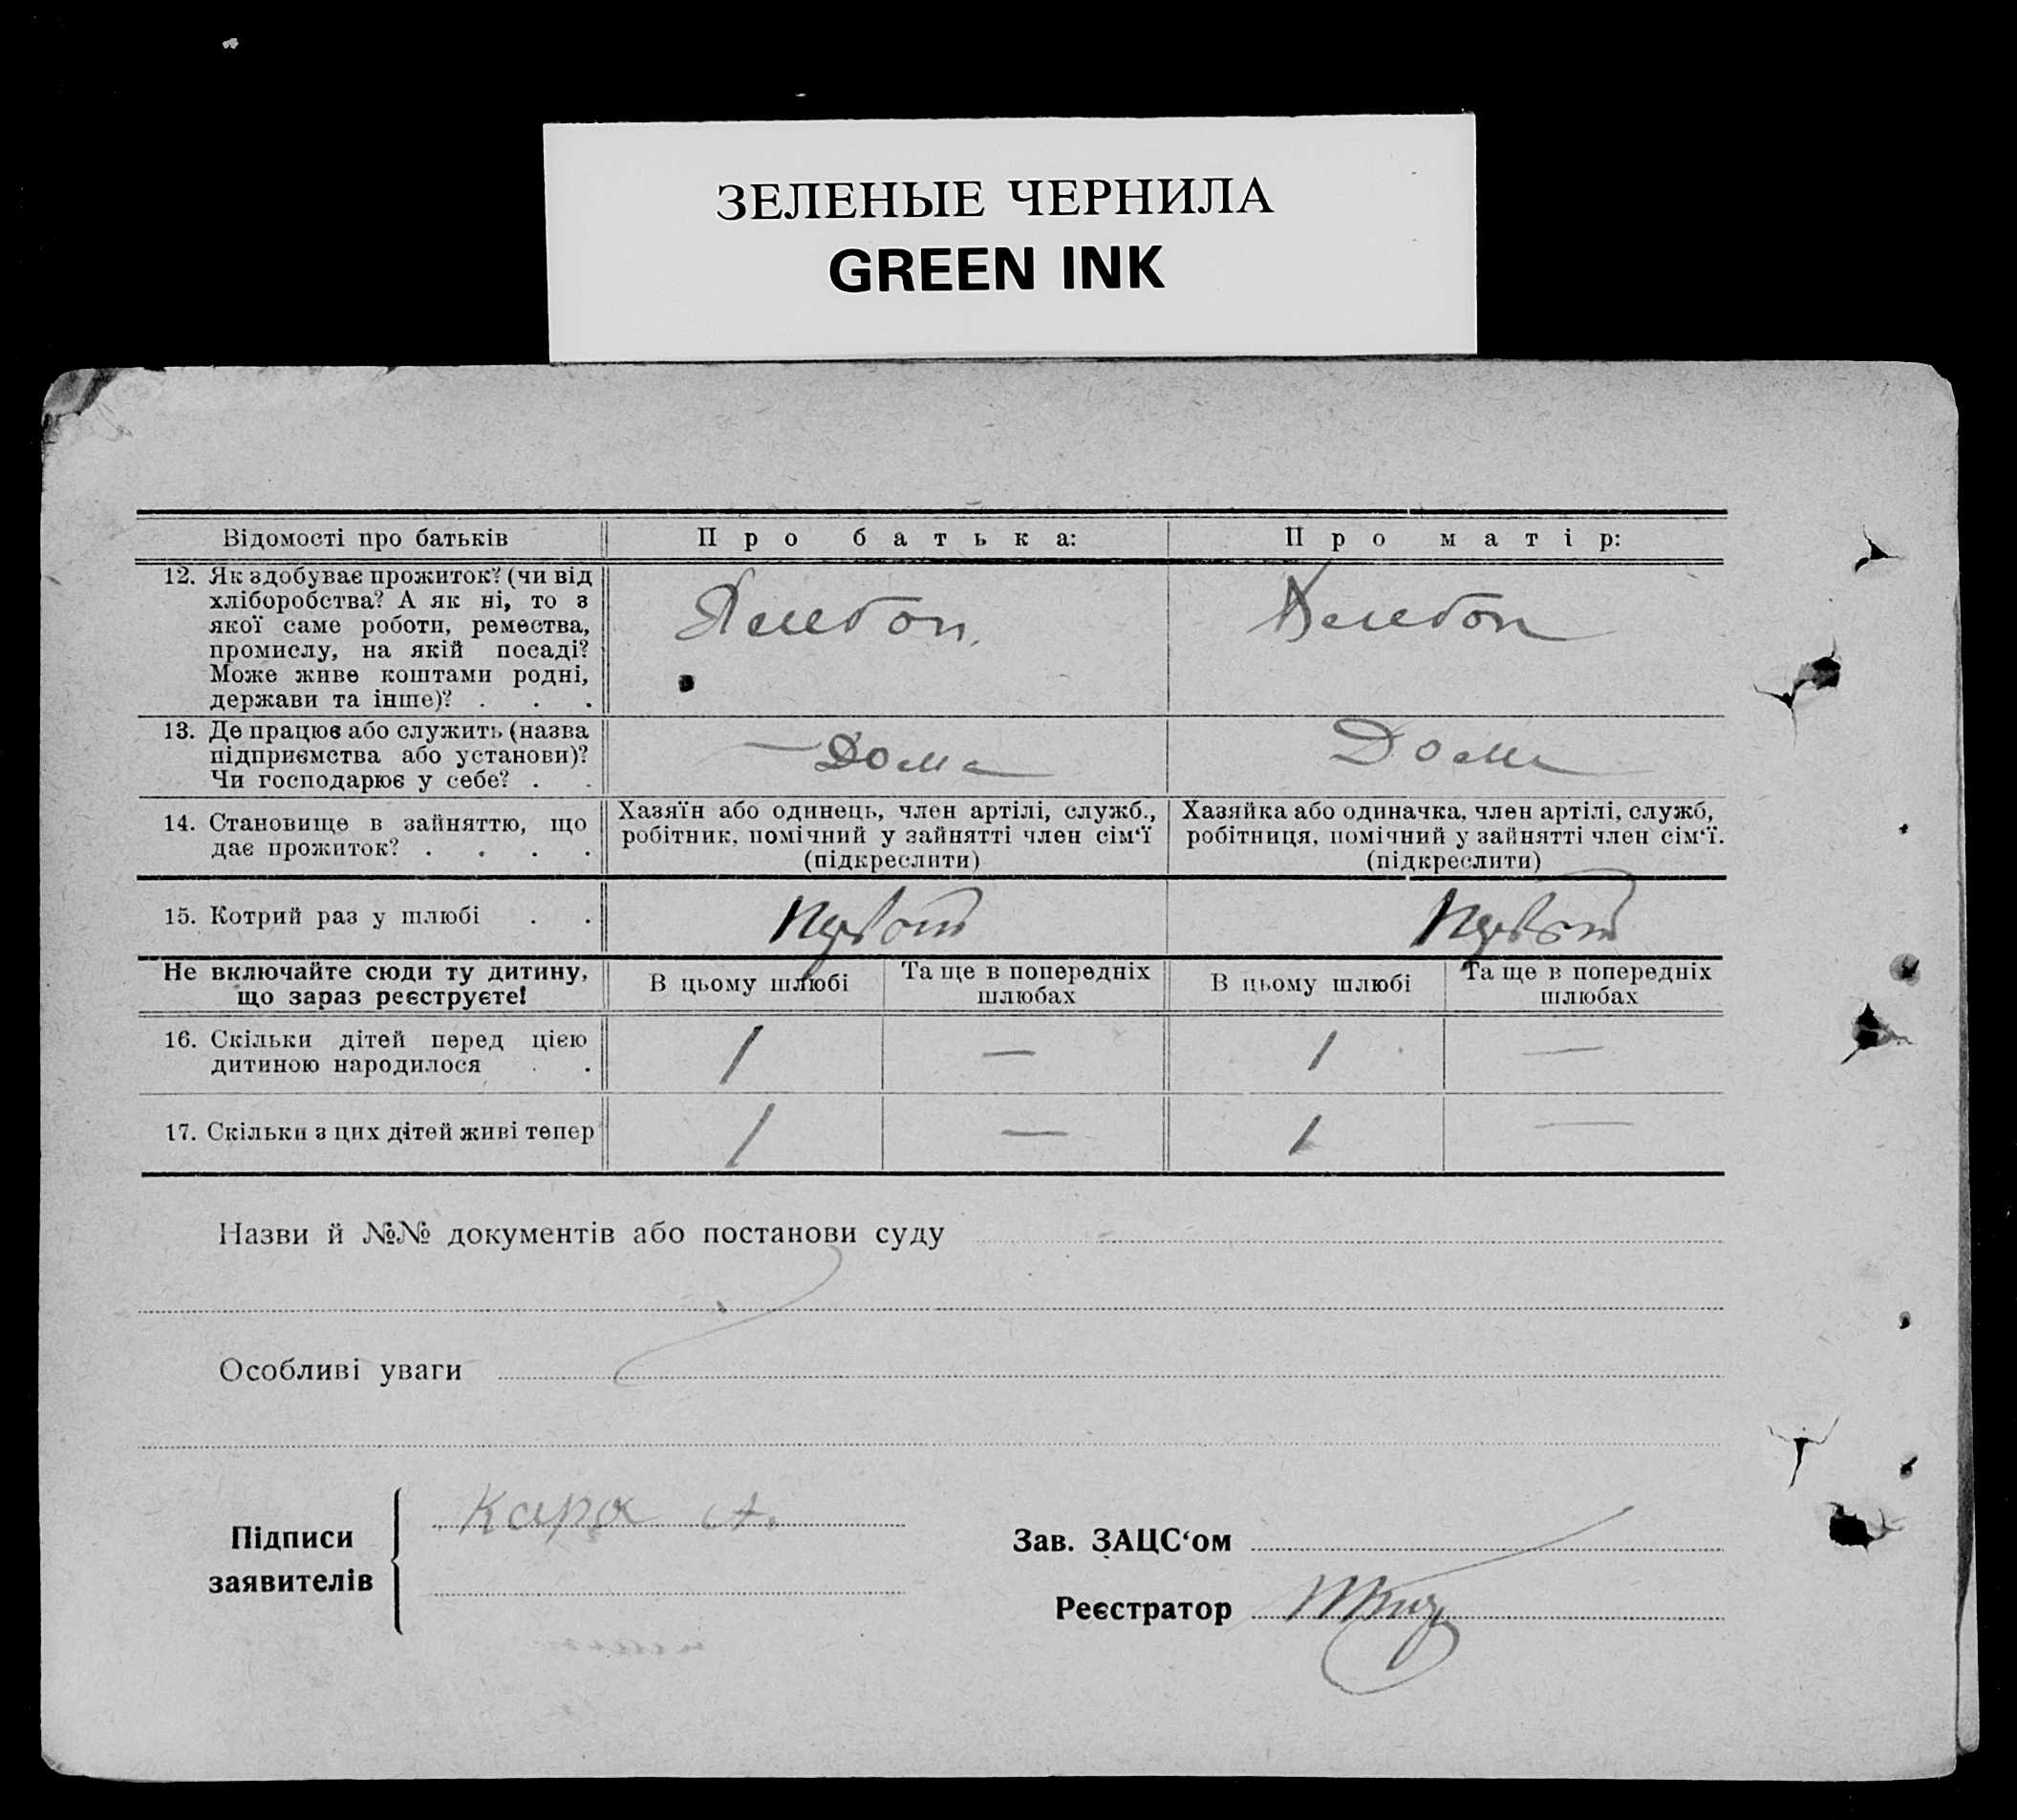 ЗЕЛЕНЫЕ ЧЕРНИЛА
GREEN INK
Відомості про батьків
Про батька:
Про матір:
12. Як здобуває прожиток? (чи від
хліборобства? А як ні, то з
якої саме роботи, ремества,
промислу, на якій посаді?
Може живе коштами родні,
держави та інше)? . . .
13. Де працює або служить (назва
підприємства або установи)?
Чи господарює у себе? . .
— Дома
Дома
14. Становище в зайняттю, що
дає прожиток? . . . .
Хазяїн або одинець, член артілі, служб.,
робітник, помічний у зайнятті член сім‘ї
(підкреслити)
Хазяйка або одиначка, член артілі, служб,
робітниця, помічний у зайнятті член сім‘ї.
(підкреслити)
15. Котрий раз у шлюбі . .
Не включайте сюди ту дитину,
що зараз реєструєте!
В цьому шлюбі
Та ще в попередніх
шлюбах
В цьому шлюбі
Та ще в попередніх
шлюбах
16. Скільки дітей перед цією
дитиною народилося . .
1 — 1 —
17. Скільки з цих дітей живі тепер
1 — 1 —
Назви й №№ документів або постанови суду
Особливі уваги
Підписи
заявителів
Кара А.
Зав. ЗАЦС‘ом
Реєстратор